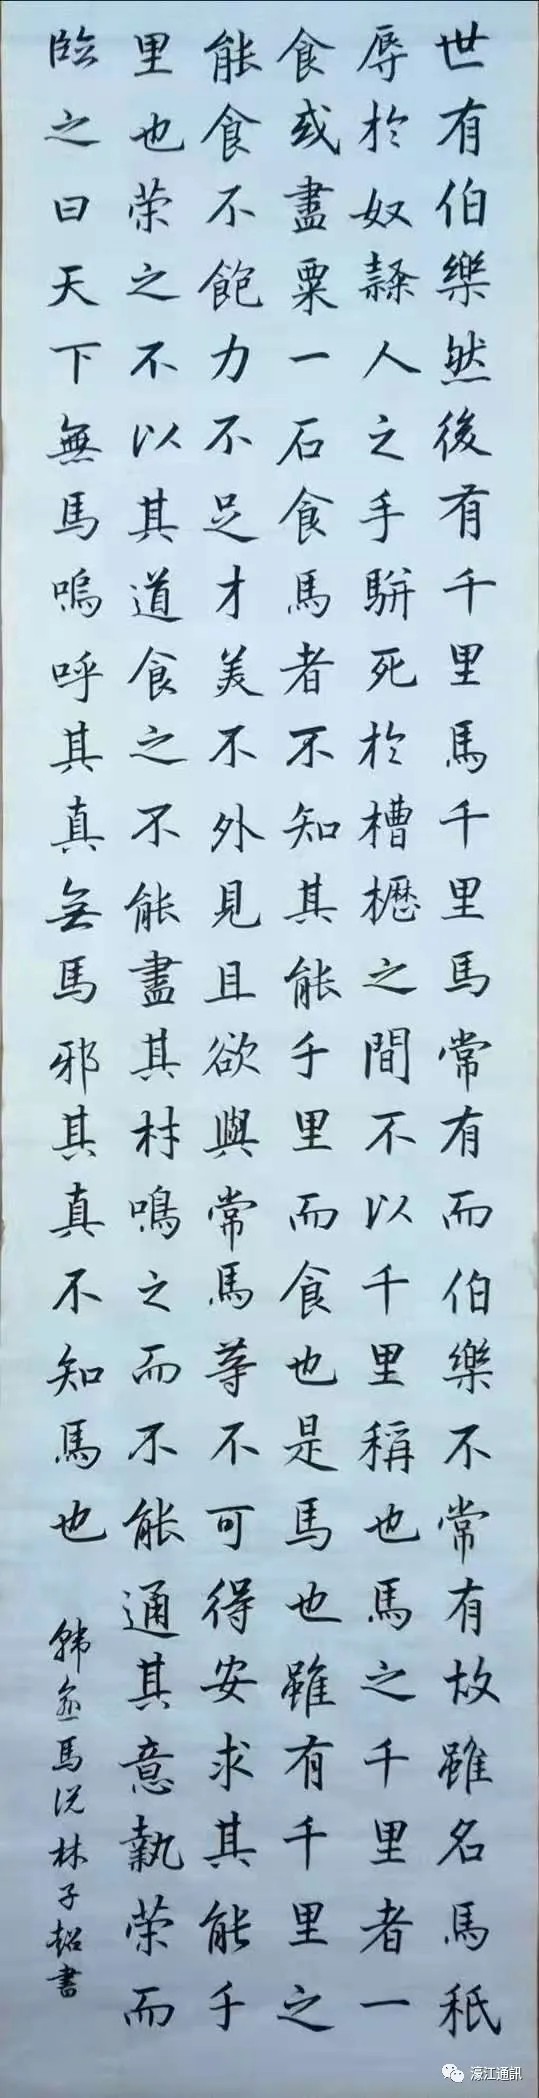 世有伯樂然後有千里馬千里馬常有而伯樂不常有故雖名馬秖
辱於奴隸人之手駢死於槽櫪之間不以千里稱也馬之千里者一
食或盡粟一石食馬者不知其能千里而食也是馬也雖有千里之
能食不飽力不足才美不外見且欲與常馬等不可得安求其能千
里也荣之不以其道食之不能盡其材鳴之而不能通其意執荣而
臨之曰天下無馬嗚呼其真無馬邪其真不知馬也
韓愈馬説林子超書
濠江通訊